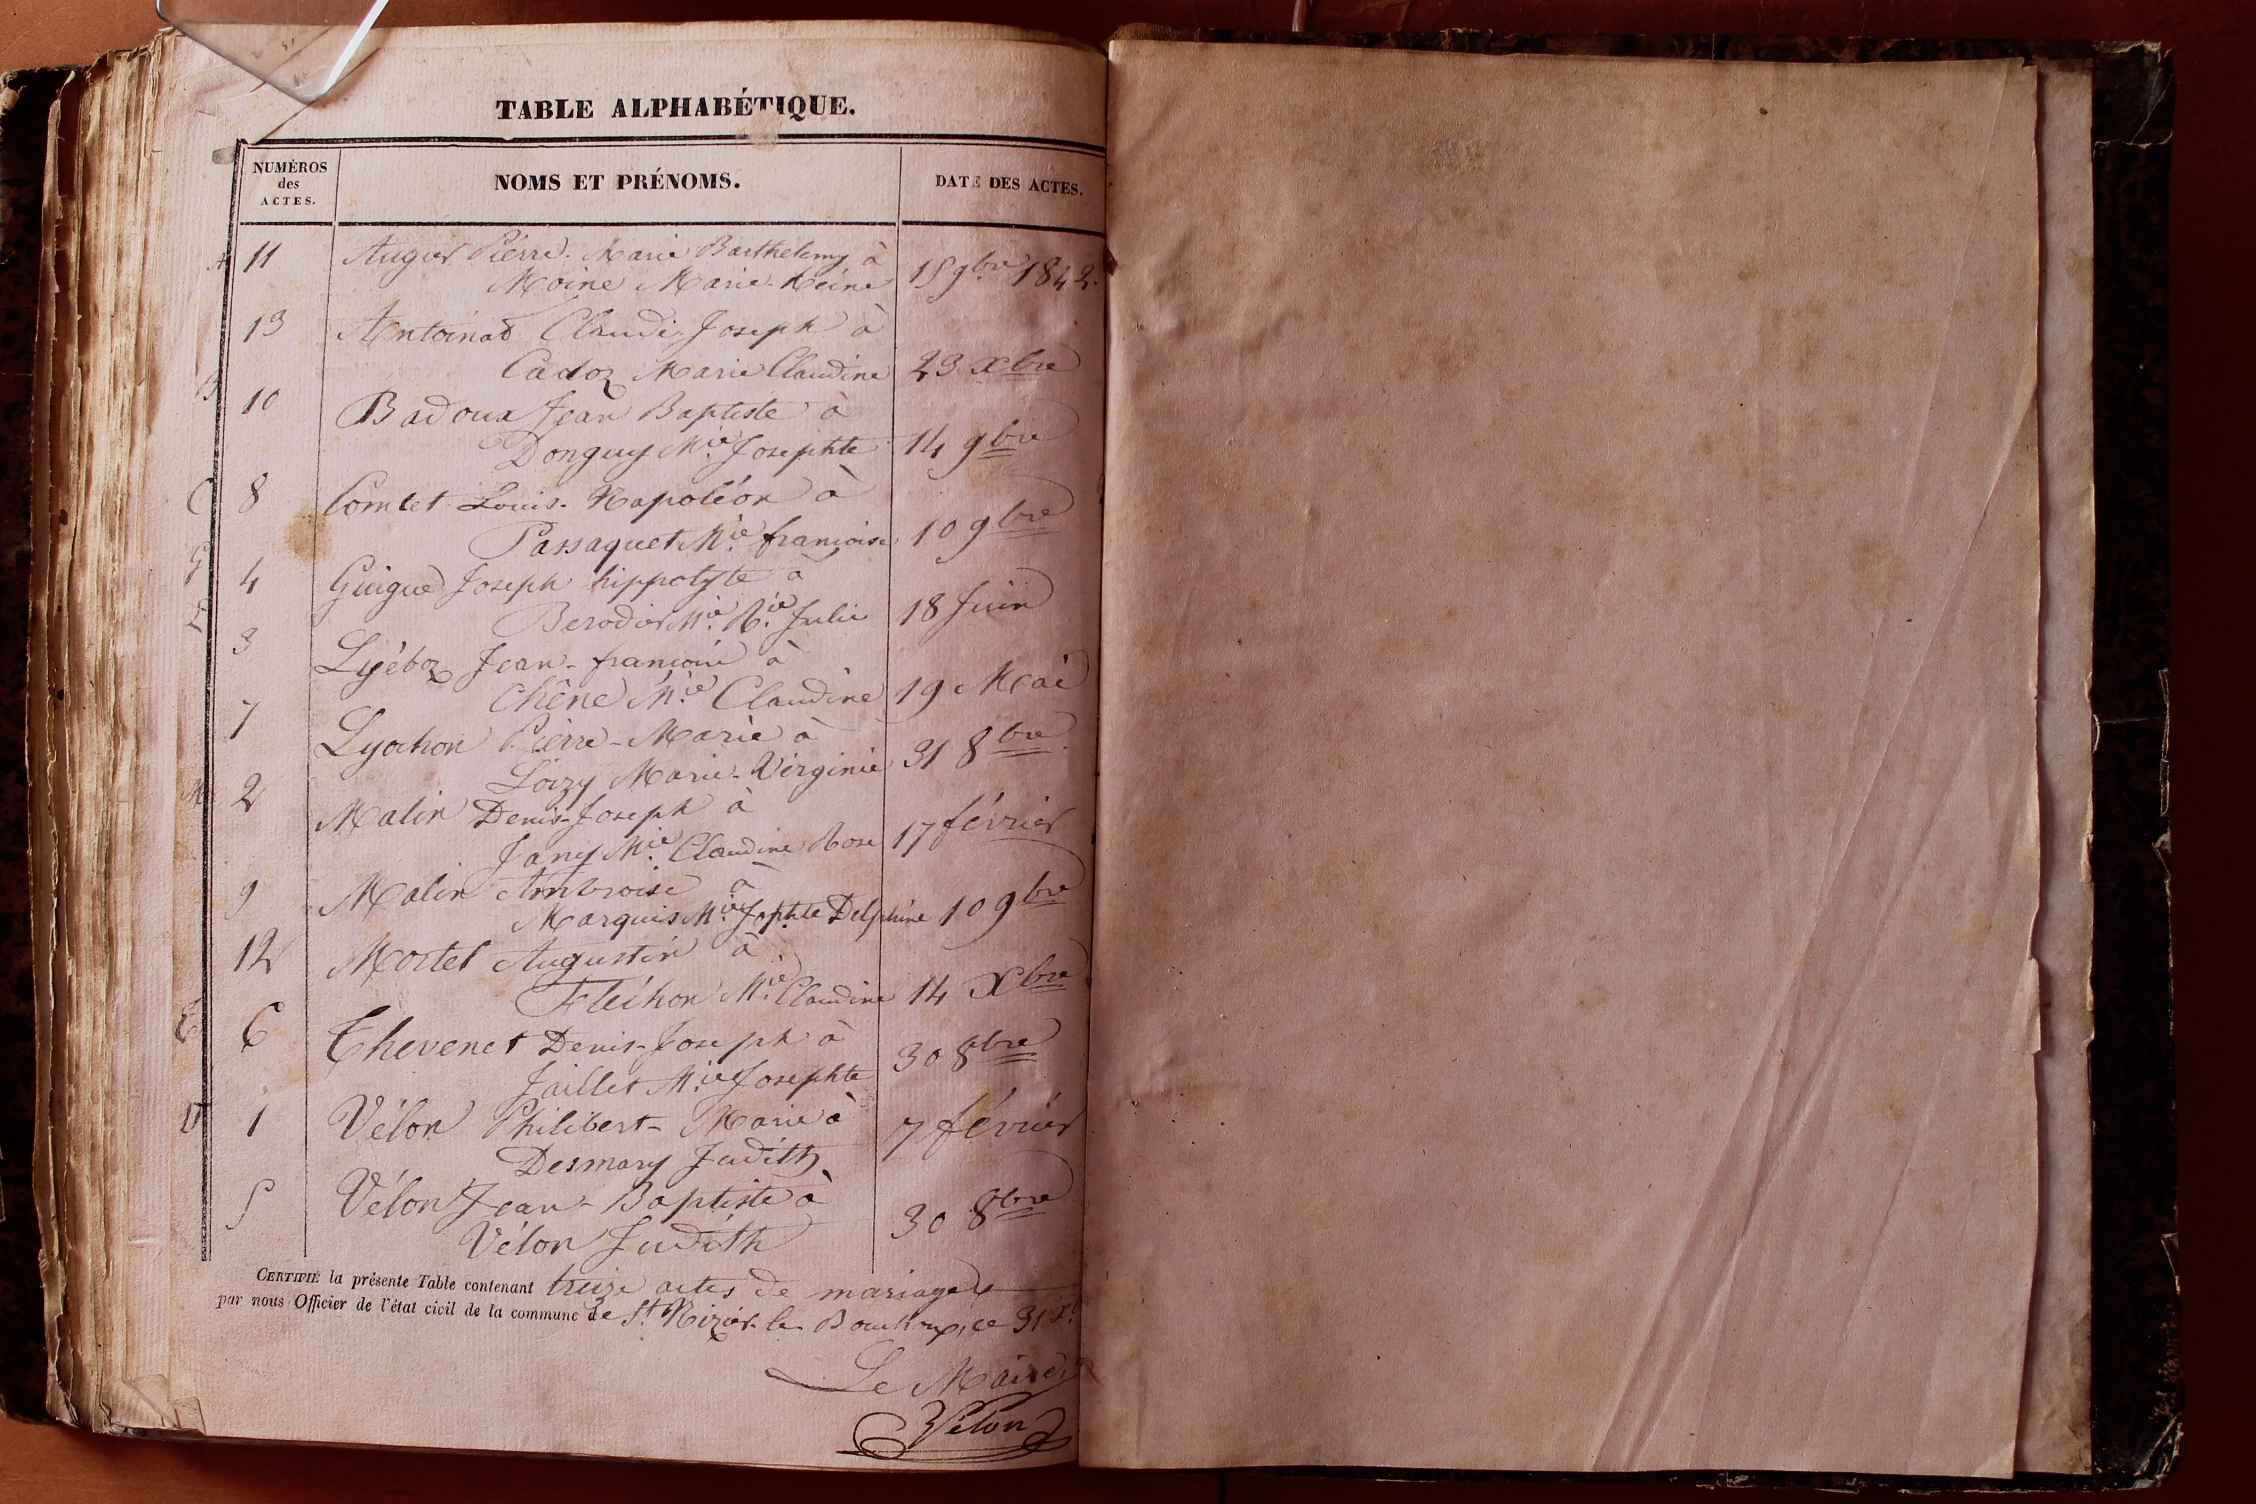 TABLE ALPHABÉTIQUE.
NUMÉROS des ACTES.
NOMS ET PRÉNOMS.
DATE DES ACTES.
A 11 Auger Pierre-Marie Barthelemy à
Moine Marie-Reine 15 9bre 1842.
13 Antoinat Claude Joseph à
Cadoz Marie Claudine 23 Xbre
B 10 Badoux Jean Baptiste à
Donguy Mie Josephte 14 9bre
C 8 Comtet Louis-Napoléon à
Passaquet Mie françoise 10 9bre
G 4 Guigue Joseph hippolyte à
Berodier Mie Julie 18 Juin
L 3 Lyéboz Jean-françois à
Chêne Mie Claudine 19 Mai
7 Lyochon Pierre-Marie à
Loizy Marie-Virginie 31 8bre
M 2 Malin Denis-Joseph à
Jany Mie Claudine Rose 17 février
9 Malin Ambroise à
Marquis Mie Jophte Delphine 10 9bre
12 Mortel Augustin à
Fléchon Mie Claudine 14 Xbre
T 6 Thevenet Denis-Joseph à
Jaillet Mie Josephte 30 8bre
V 1 Vélon Philibert-Marie à
Desmary Judith 7 février
5 Vélon Jean-Baptiste à
Vélon Judith 30 8bre
CERTIFIÉ la présente Table contenant treize actes de mariages
par nous Officier de l'état civil de la commune de St Nizier-le-Bouchoux, ce 31 Xe
Le Maire
Vélon